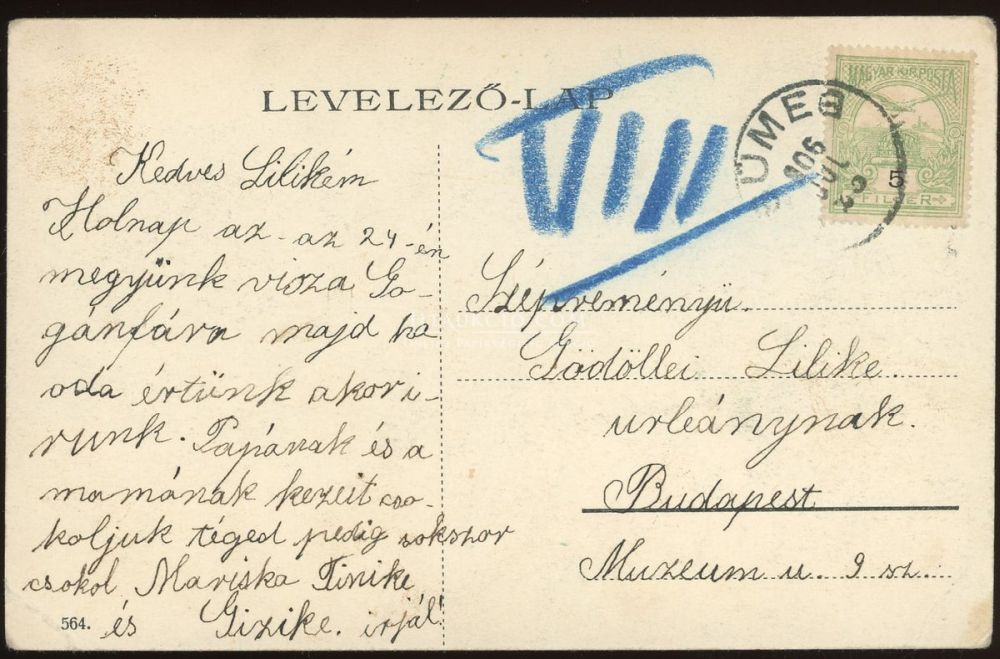 LEVELEZŐ-LAP
VIII
MAGYAR KIR. POSTA
5
FILLÉR
SÜMEG
Kedves Lilikém
Holnap az - az 24-én
megyünk visza Go-
gánfára majd ha
oda értünk akor i-
runk. Papának és a
mamának kezeit cso-
koljuk téged pedig sokszor
csokol Mariska Tinike
és Gizike. irjál
564.
Szépreményü
Gödöllei Lilike
urleánynak.
Budapest
Muzeum u. 9 sz.